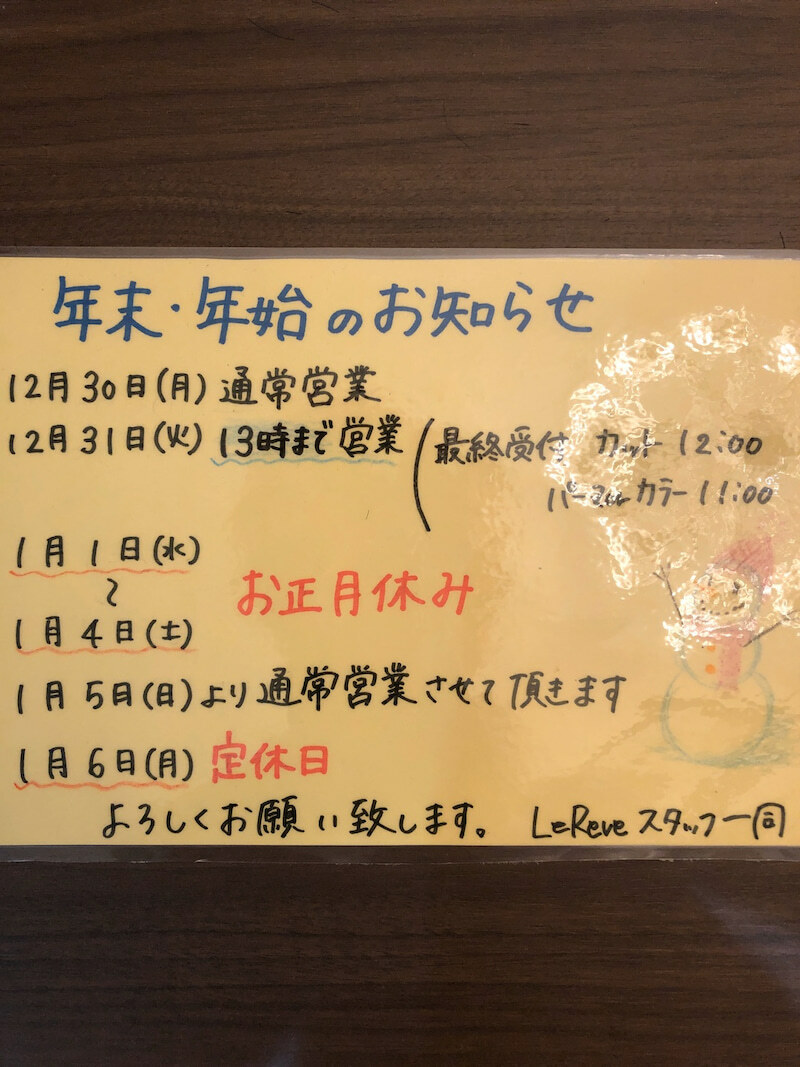 年末・年始のお知らせ
12月30日(月) 通常営業
12月31日(火) 13時まで営業 ( 最終受付 カット 12:00
パーマ カラー 11:00
1月1日(水)
〜 お正月休み
1月4日(土)
1月5日(日)より通常営業させて頂きます
1月6日(月) 定休日
よろしくお願い致します。 LeReve スタッフ一同